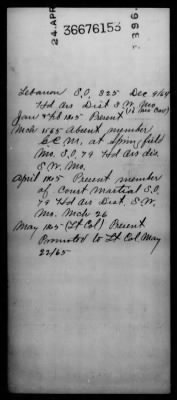 24. APR
36676153
396.
Lebanon S.O. 325 Dec 9/64
Hd Qrs Dist S.W. Mo
Jan & Feb 1865 Present
Mch 1865 Absent member
G C M. at Springfield
Mo. S.O. 79 Hd Qrs Dis
S.W. Mo.
April 1865 Present member
of Court Martial S.O.
79 Hd Qrs Dist. S.W.
Mo. Mch 26
May 1865 (Lt Col) Present
Promoted to Lt Col May
22/65